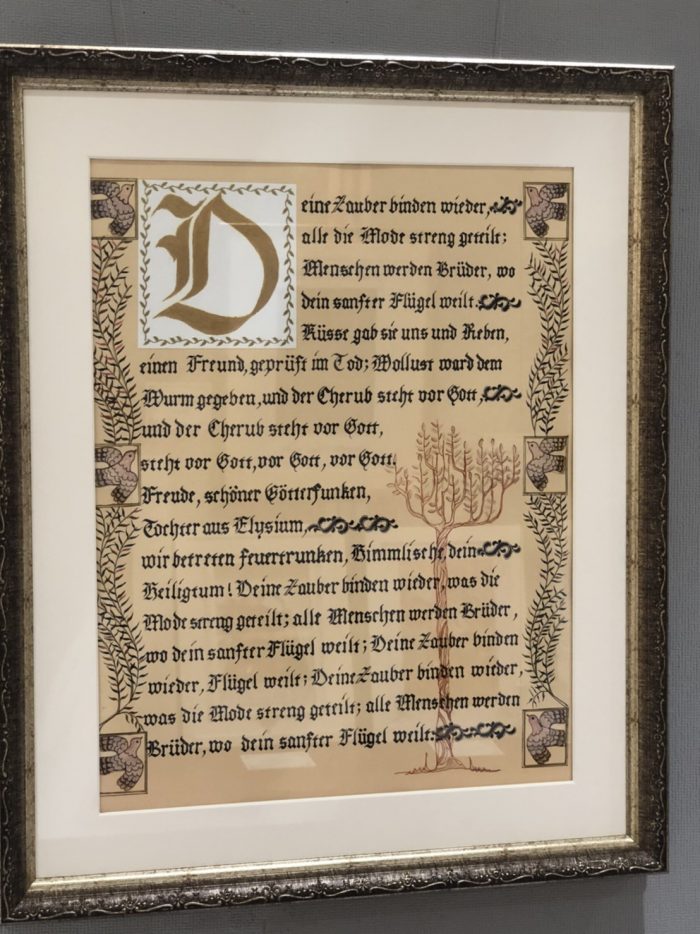 Deine Zauber binden wieder,
alle die Mode streng geteilt;
Menschen werden Brüder, wo
dein sanfter Flügel weilt.
Küsse gab sie uns und Reben,
einen Freund, geprüft im Tod; Wollust ward dem
Wurm gegeben, und der Cherub steht vor Gott,
und der Cherub steht vor Gott,
steht vor Gott, vor Gott, vor Gott.
Freude, schöner Götterfunken,
Tochter aus Elysium,
wir betreten feuertrunken, Himmlische, dein
Heiligtum! Deine Zauber binden wieder, was die
Mode streng geteilt; alle Menschen werden Brüder,
wo dein sanfter Flügel weilt; Deine Zauber binden
wieder, Flügel weilt; Deine Zauber binden wieder,
was die Mode streng geteilt; alle Menschen werden
Brüder, wo dein sanfter Flügel weilt.